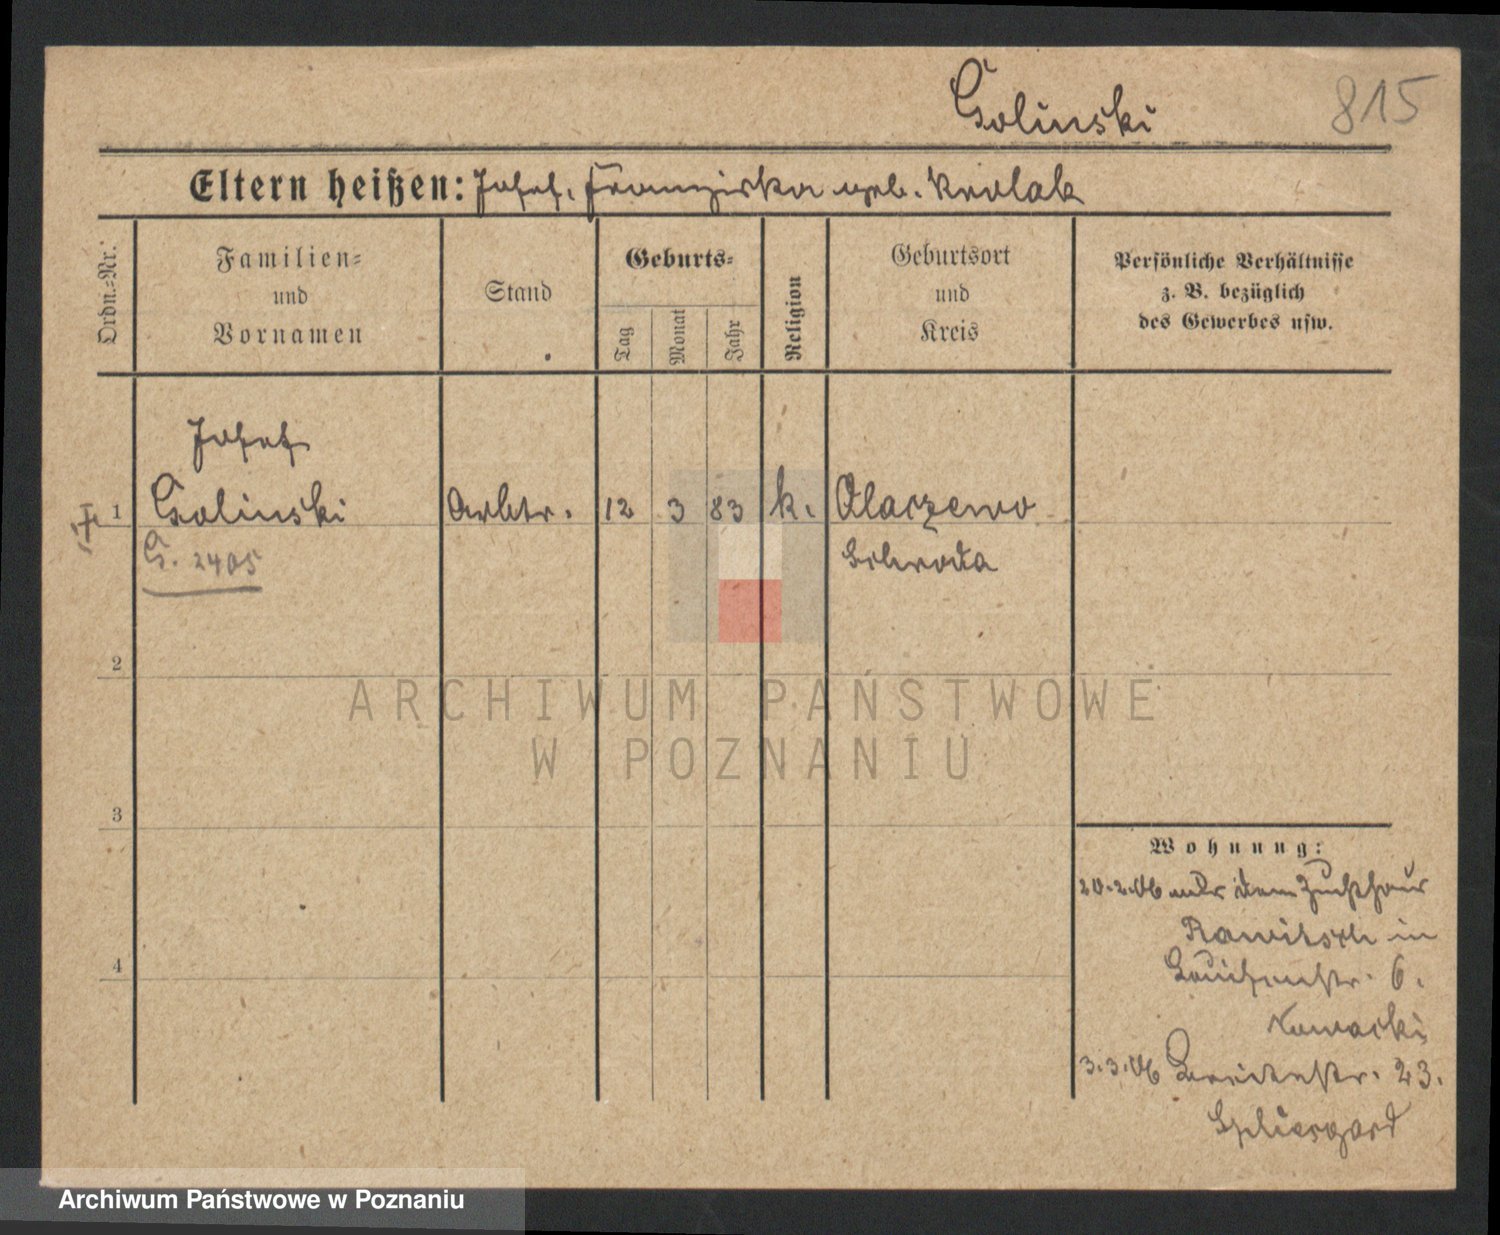 Golinski
815
Eltern heißen: Josef, Franziska geb. Krolak
Ordn.-Nr.
Familien-
und
Vornamen
Stand
Geburts-
Tag
Monat
Jahr
Religion
Geburtsort
und
Kreis
Persönliche Verhältnisse
z. B. bezüglich
des Gewerbes usw.
Josef
1 Golinski Arbtr. 12 3 83 k. Olaczewo
G. 2405 Schroda
2
3
4
Wohnung:
20.2.06 aus dem Zuchthaus
Rawitsch in
6.
Nowacki
3.3.06 Breitestr. 23.
ARCHIWUM PAŃSTWOWE
W POZNANIU
Archiwum Państwowe w Poznaniu